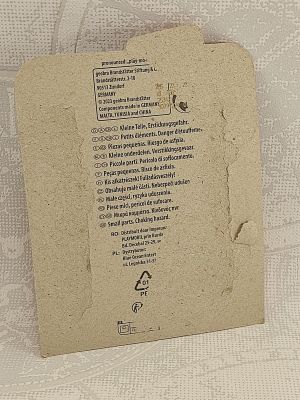 pronounced „play-mo-
geobra Brandstätter Stiftung & C
Brandstätterstr. 2-10
90513 Zirndorf
GERMANY
© 2023 geobra Brandstätter
Components made in GERMANY,
MALTA, TUNISIA and CHINA
Kleine Teile, Erstickungsgefahr.
Petits éléments. Danger d'étouffeme
Piezas pequeñas. Riesgo de asfixia.
Kleine onderdelen. Verstikkingsgevaar.
Piccole parti. Pericolo di soffocamento.
Peças pequenas. Risco de asfixia.
Kis alkatrészek! Fulladásveszély!
Obsahuje malé části. Nebezpečí udušen
Małe części, ryzyko uduszenia.
Piese mici, pericol de sufocare.
Μικρά κομμάτια. Κίνδυνος πνι
Small parts. Choking hazard.
RO: Distribuit
PLAYMOBIL prin
Bd. Decebal 25-29, se
PL:
ul. Legnicka 31-37
01
PE